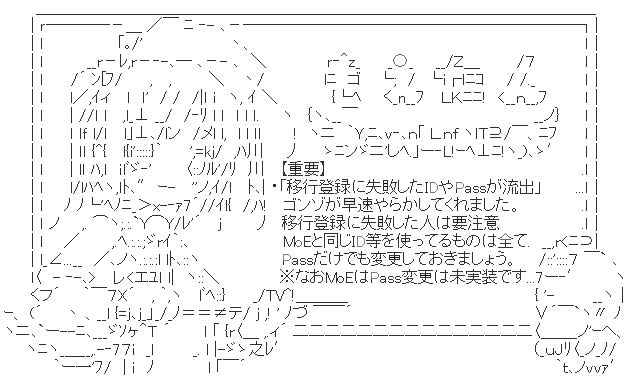 【重要】
・「移行登録に失敗したIDやPassが流出」
ゴンゾが早速やらかしてくれました。
移行登録に失敗した人は要注意、
MoEと同じID等を使ってるものは全て、
Passだけでも変更しておきましょう。
※なおMoEはPass変更は未実装です…